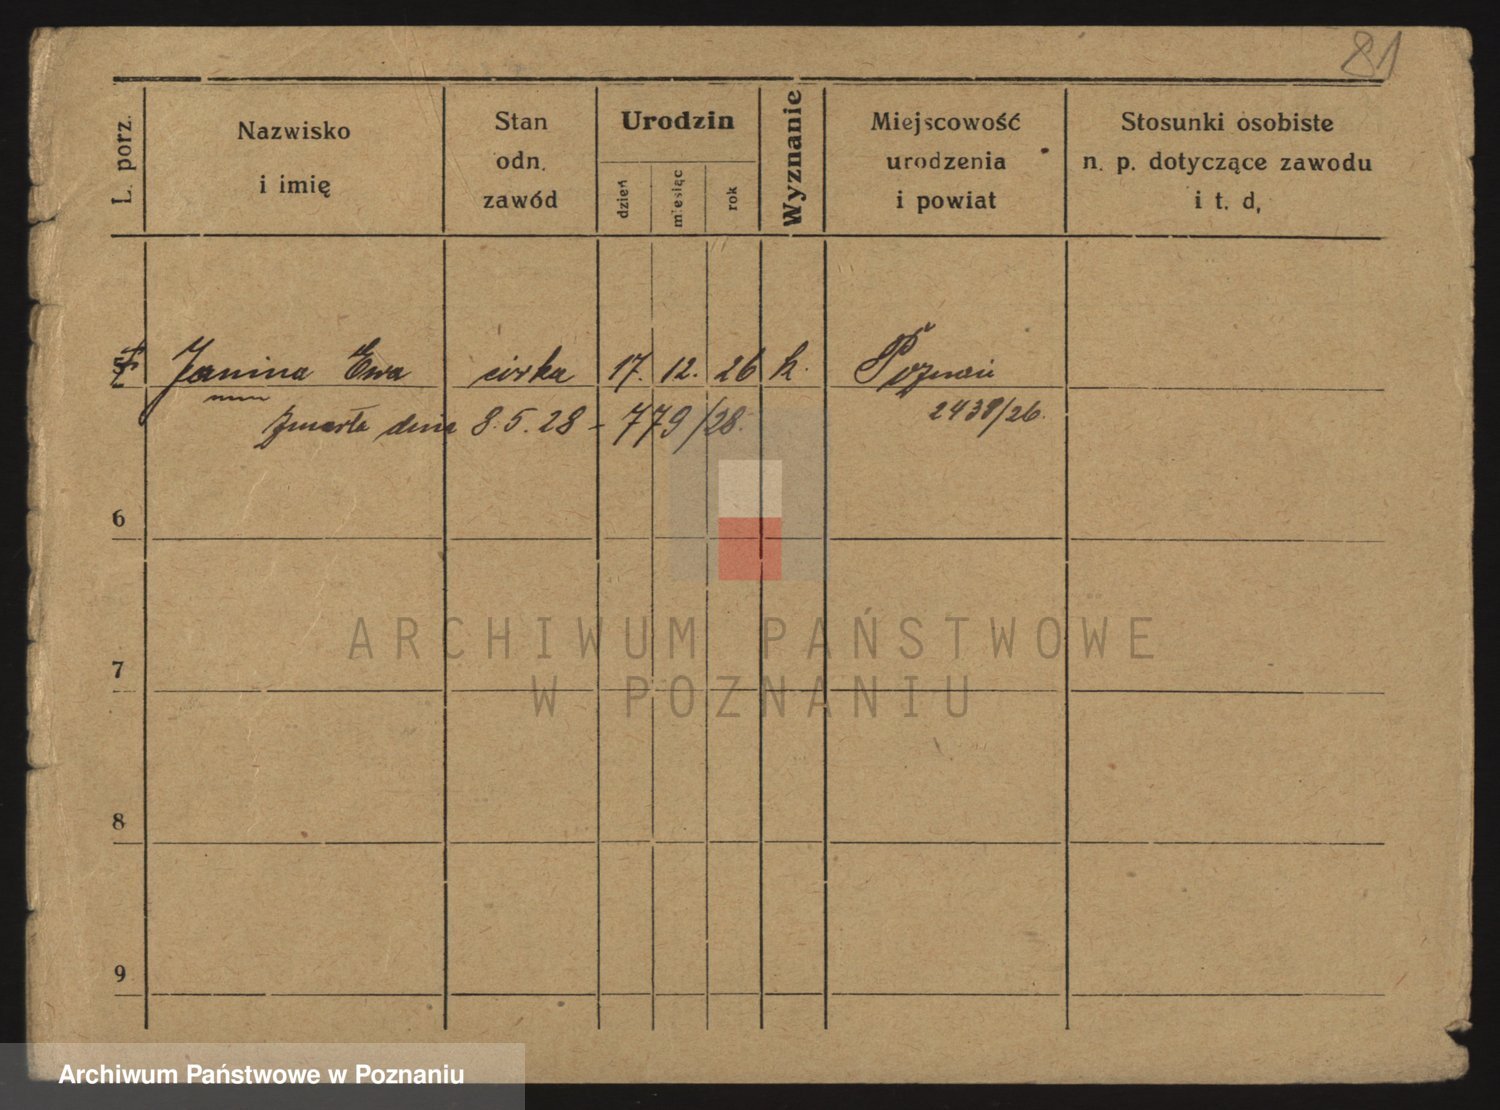 81
L. porz.
Nazwisko
i imię
Stan
odn.
zawód
Urodzin
dzień
miesiąc
rok
Wyznanie
Miejscowość
urodzenia
i powiat
Stosunki osobiste
n. p. dotyczące zawodu
i t. d,
Janina Ewa córka 17. 12. 26 k. Poznań
zmarła dnia 8.5.28 - 779/28. 2438/26.
6
7
8
9
ARCHIWUM PAŃSTWOWE
W POZNANIU
Archiwum Państwowe w Poznaniu